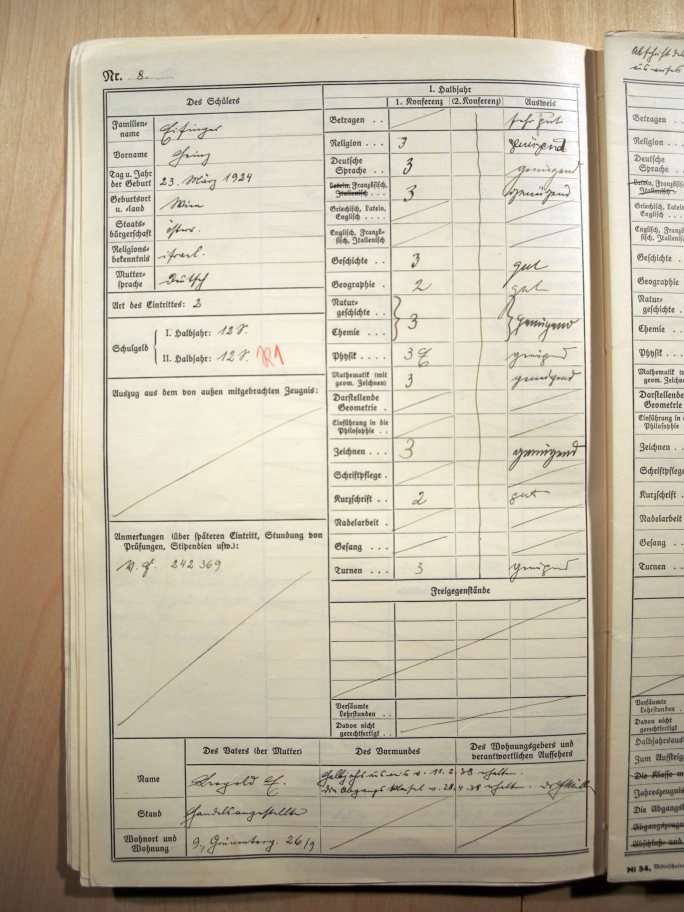 Nr. 8.
Des Schülers
Familien-
name
Vorname
Heinz
Tag u. Jahr
der Geburt
23. März 1924
Geburtsort
u. -land
Wien
Staats-
bürgerschaft
österr.
Religions-
bekenntnis
israel.
Mutter-
sprache
Deutsch
Art des Eintrittes: 2
Schulgeld
I. Halbjahr: 12 S.
II. Halbjahr: 12 S.
Auszug aus dem von außen mitgebrachten Zeugnis:
Anmerkungen (über späteren Eintritt, Stundung von
Prüfungen, Stipendien usw.):
242 369
I. Halbjahr
1. Konferenz (2. Konferenz) Ausweis
Betragen . . sehr gut
Religion . . . 3 genügend
Deutsche
Sprache . . . 3 genügend
Latein, Französisch,
Italienisch . . . 3 genügend
Griechisch, Latein,
Englisch . . . .
Englisch, Franzö-
sisch, Italienisch
Geschichte . . 3 gut
Geographie . 2 gut
Natur-
geschichte . .
Chemie . . . 3 genügend
Physik . . . . 3 genügend
Mathematik (mit
geom. Zeichnen) 3 genügend
Darstellende
Geometrie .
Einführung in die
Philosophie . .
Zeichnen . . . 3 genügend
Schriftpflege .
Kurzschrift . . 2 gut
Nadelarbeit .
Gesang . . .
Turnen . . . 3 genügend
Freigegenstände
Versäumte
Lehrstunden . .
Davon nicht
gerechtfertigt . .
Des Vaters (der Mutter) Des Vormundes Des Wohnungsgebers und
verantwortlichen Aufsehers
Name
Leopold E.
Halbjahrsausweis v. 11. 2. 38 erhalten.
die Abgangsklausel v. 28. 4. 38 erhalten.
Stand
Handelsangestellter
Wohnort und
Wohnung
26/9
Abschrift des
Betragen . .
Religion . .
Deutsche
Sprache . .
Latein, Französisch
Italienisch . .
Griechisch, Latein,
Englisch . . .
Englisch, Franzö-
sisch, Italienisch
Geschichte .
Geographie
Natur-
geschichte .
Chemie . .
Physik . . .
Mathematik (mit
geom. Zeichnen)
Darstellende
Geometrie
Einführung in die
Philosophie .
Zeichnen . .
Schriftpflege
Kurzschrift .
Nadelarbeit
Gesang . .
Turnen . .
Versäumte
Lehrstunden .
Davon nicht
gerechtfertigt .
Halbjahrsaus
Zum Aufsteig
Die Klasse
Jahreszeugnis
Die Abgangs
Abgangszeugn
Abschluß- und
Mi 54.